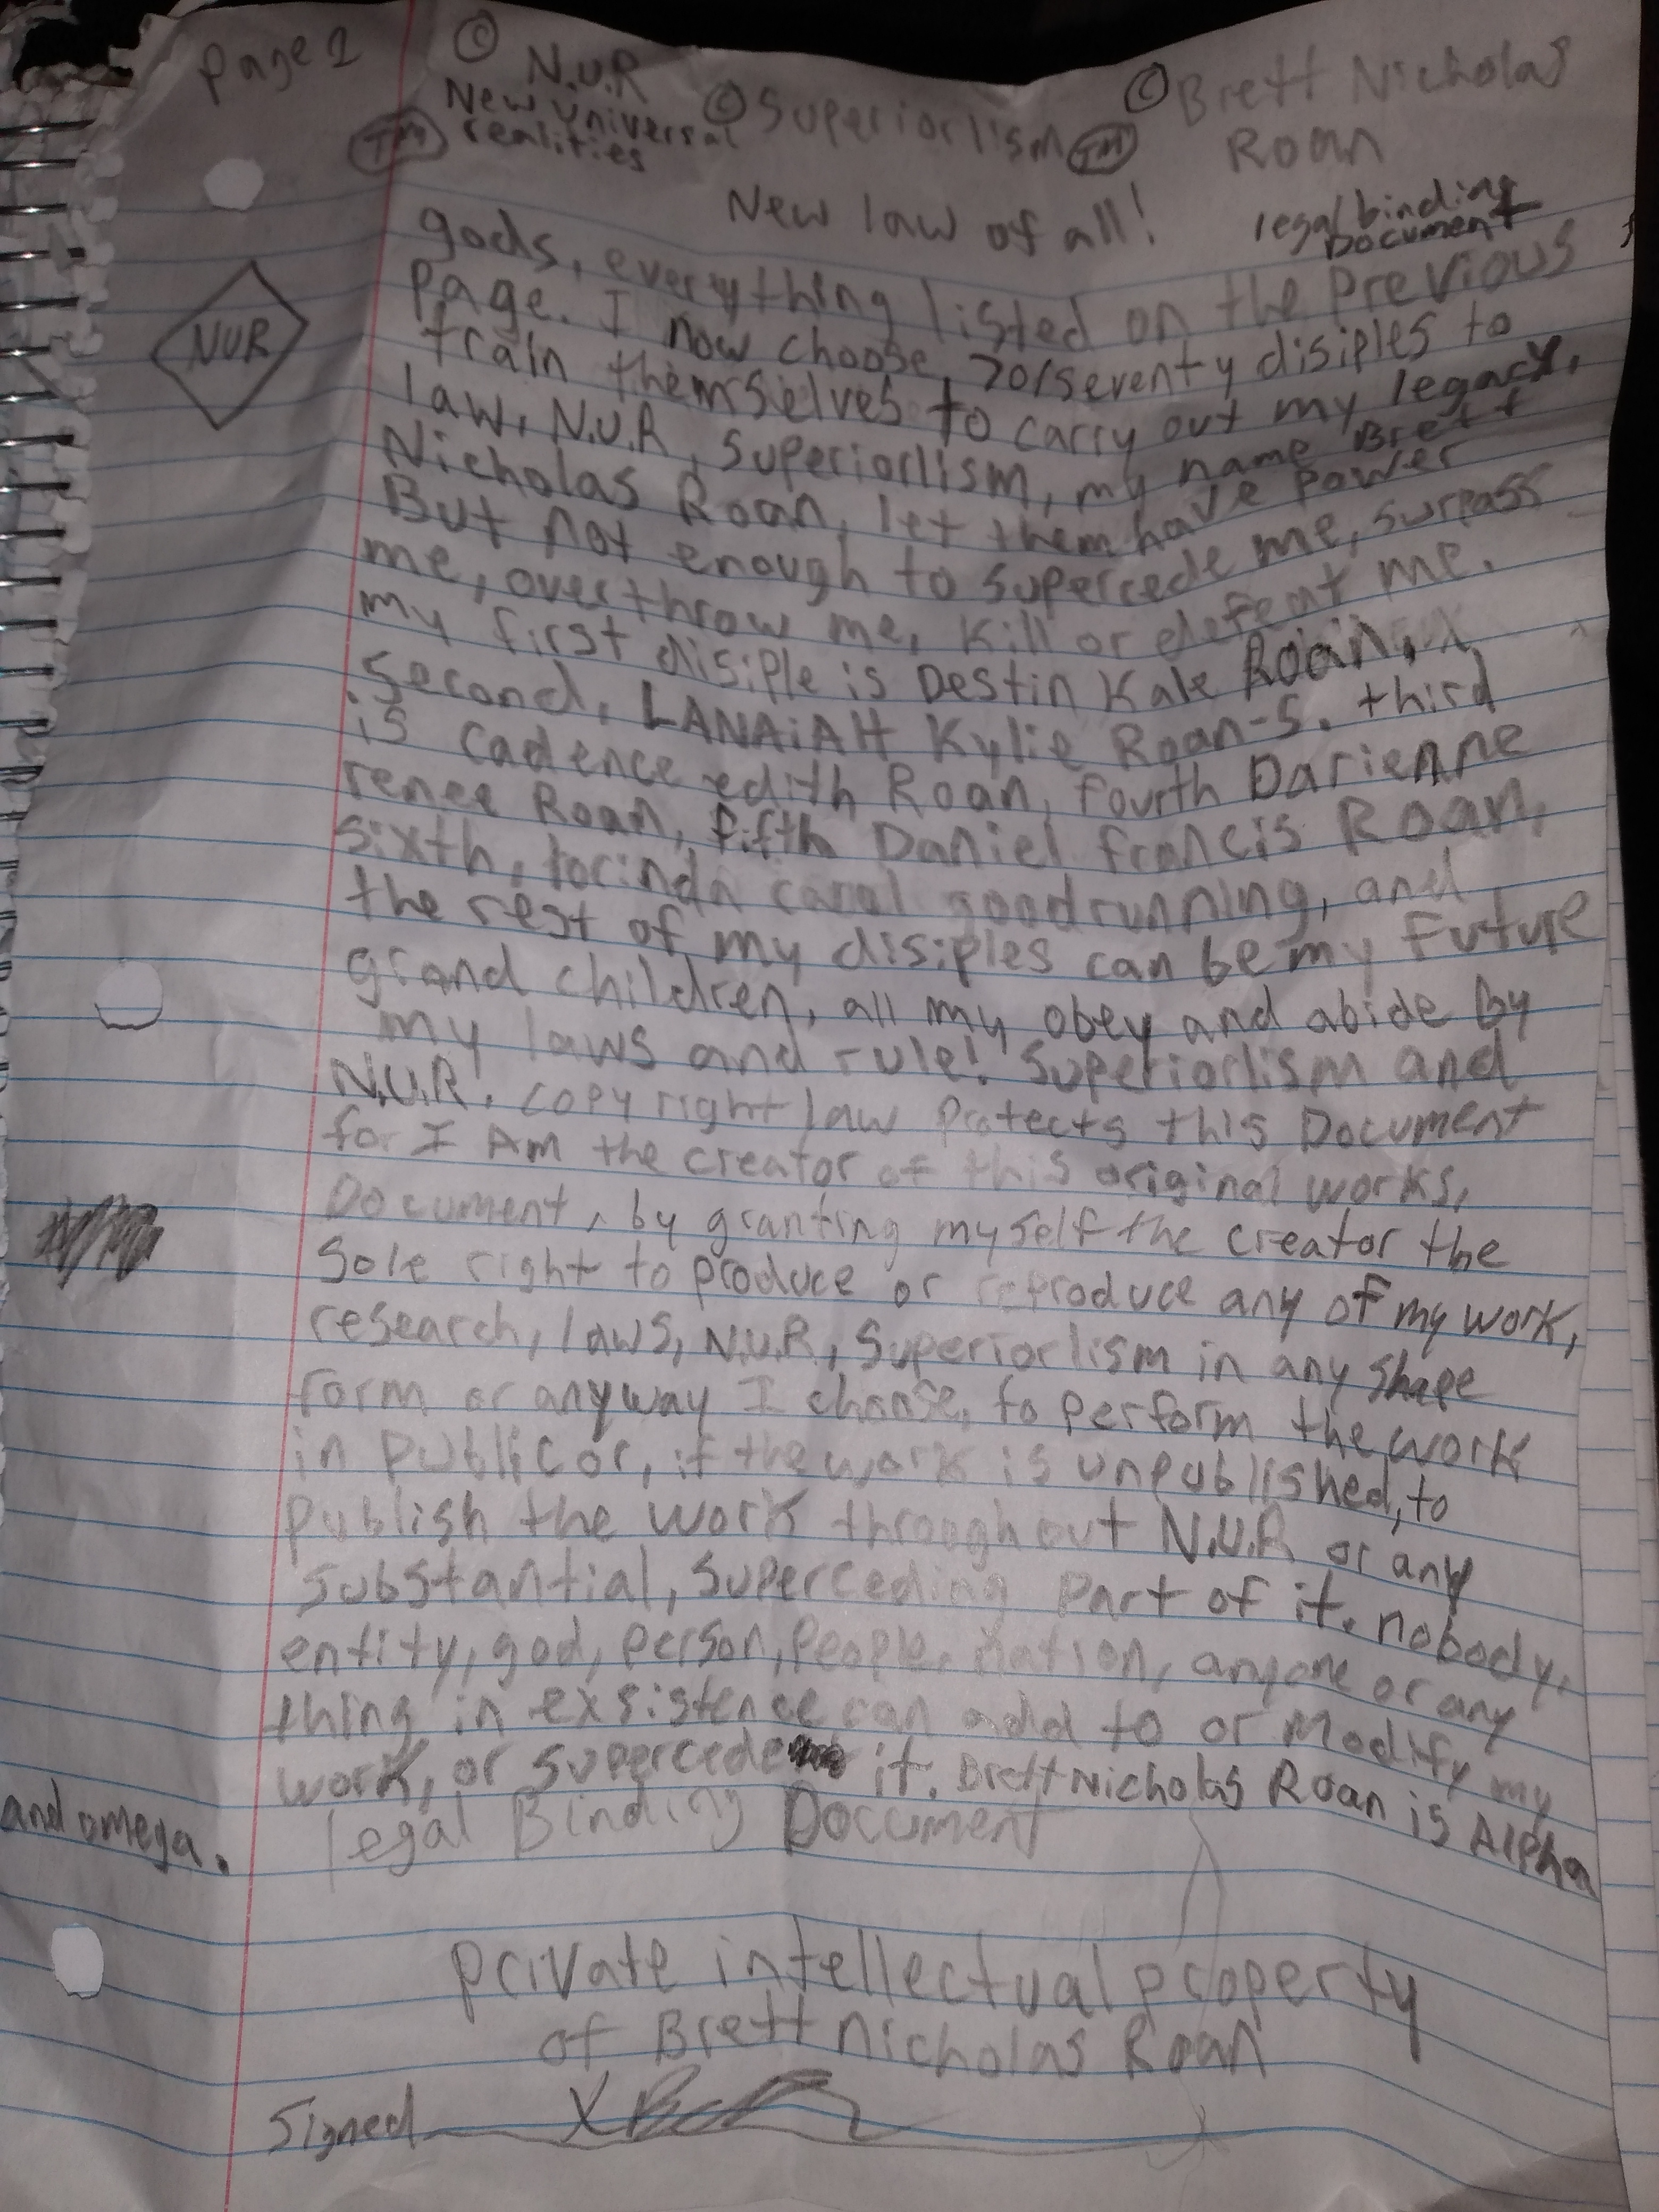 Page 2
© N.U.R
New Universal
realities
TM
© Superiorlism TM
© Brett Nicholas
Roan
New law of all!
legal binding
Document
NUR
gods, everything listed on the Previous
Page. I now choose, 70/seventy disiples to
train themselves to carry out my legacy,
law, N.U.R, Superiorlism, my name Brett
Nicholas Roan, let them have power
But not enough to supercede me, surpass
me, overthrow me, kill or defeat me.
my first disiple is Destin Kale Roan,
second, LANAiAH Kylie Roan-S. third
is cadence edith Roan, fourth Darienne
renee Roan, fifth Daniel francis Roan,
sixth, lorinda caral goodrunning, and
the rest of my disiples can be my Future
grand children, all my obey and abide By
my laws and rule! Superiorlism and
N.U.R. copyright law Protects this Document
for I Am the creator of this original works,
Document, by granting myself the creator the
Sole right to produce or reproduce any of my work,
research, laws, N.U.R, Superiorlism in any shape
form or anyway I choose, to perform the work
in Public or, if the work is unpublished, to
Publish the work throughout N.U.R or any
Substantial, Superceding Part of it. nobody,
entity, god, person, People, nation, anyone or any
thing in exsistence can add to or Modify my
work, or supercede it. Brett Nicholas Roan is Alpha
and omega.
legal Binding Document
private intellectual property
of Brett Nicholas Roan
Signed X